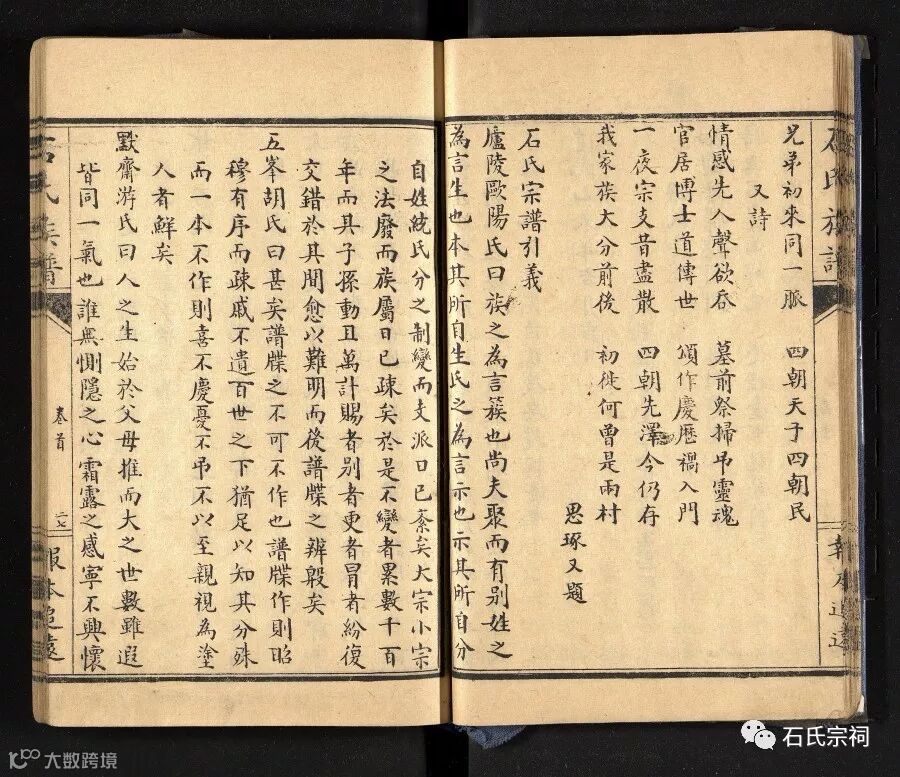 石氏族譜
兄弟初來同一脈 四朝天子四朝民
又詩
情感先入聲欲吞 墓前祭掃弔靈魂
官居博士道傳世 頌作慶歷禍入門
一夜宗支昔盡散 四朝先澤今仍存
我家族大分前後 初徙何曾是兩村
思琢又題
石氏宗譜引義
廬陵歐陽氏曰族之為言簇也尚夫聚而有别姓之
為言生也本其所自生氏之為言示也示其所自分
自姓統氏分之制變而支派日已紊矣大宗小宗
之法廢而族屬日已疎矣於是不變者累數千百
年而具子孫動且萬計賜者别者更者冒者紛復
交錯於其間愈以難明而後譜牒之辨殽矣
五峯胡氏曰甚矣譜牒之不可不作也譜牒作則昭
穆有序而疎戚不遺百世之下猶足以知其分殊
而一本不作則喜不慶憂不弔不以至親視為塗
人者鮮矣
默齋游氏曰人之生始於父母推而大之世數雖遐
皆同一氣也誰無惻隱之心霜露之感寧不興懷
石氏族譜
卷首
二七
報本追遠
報本追遠
石氏宗祠
大数跨境